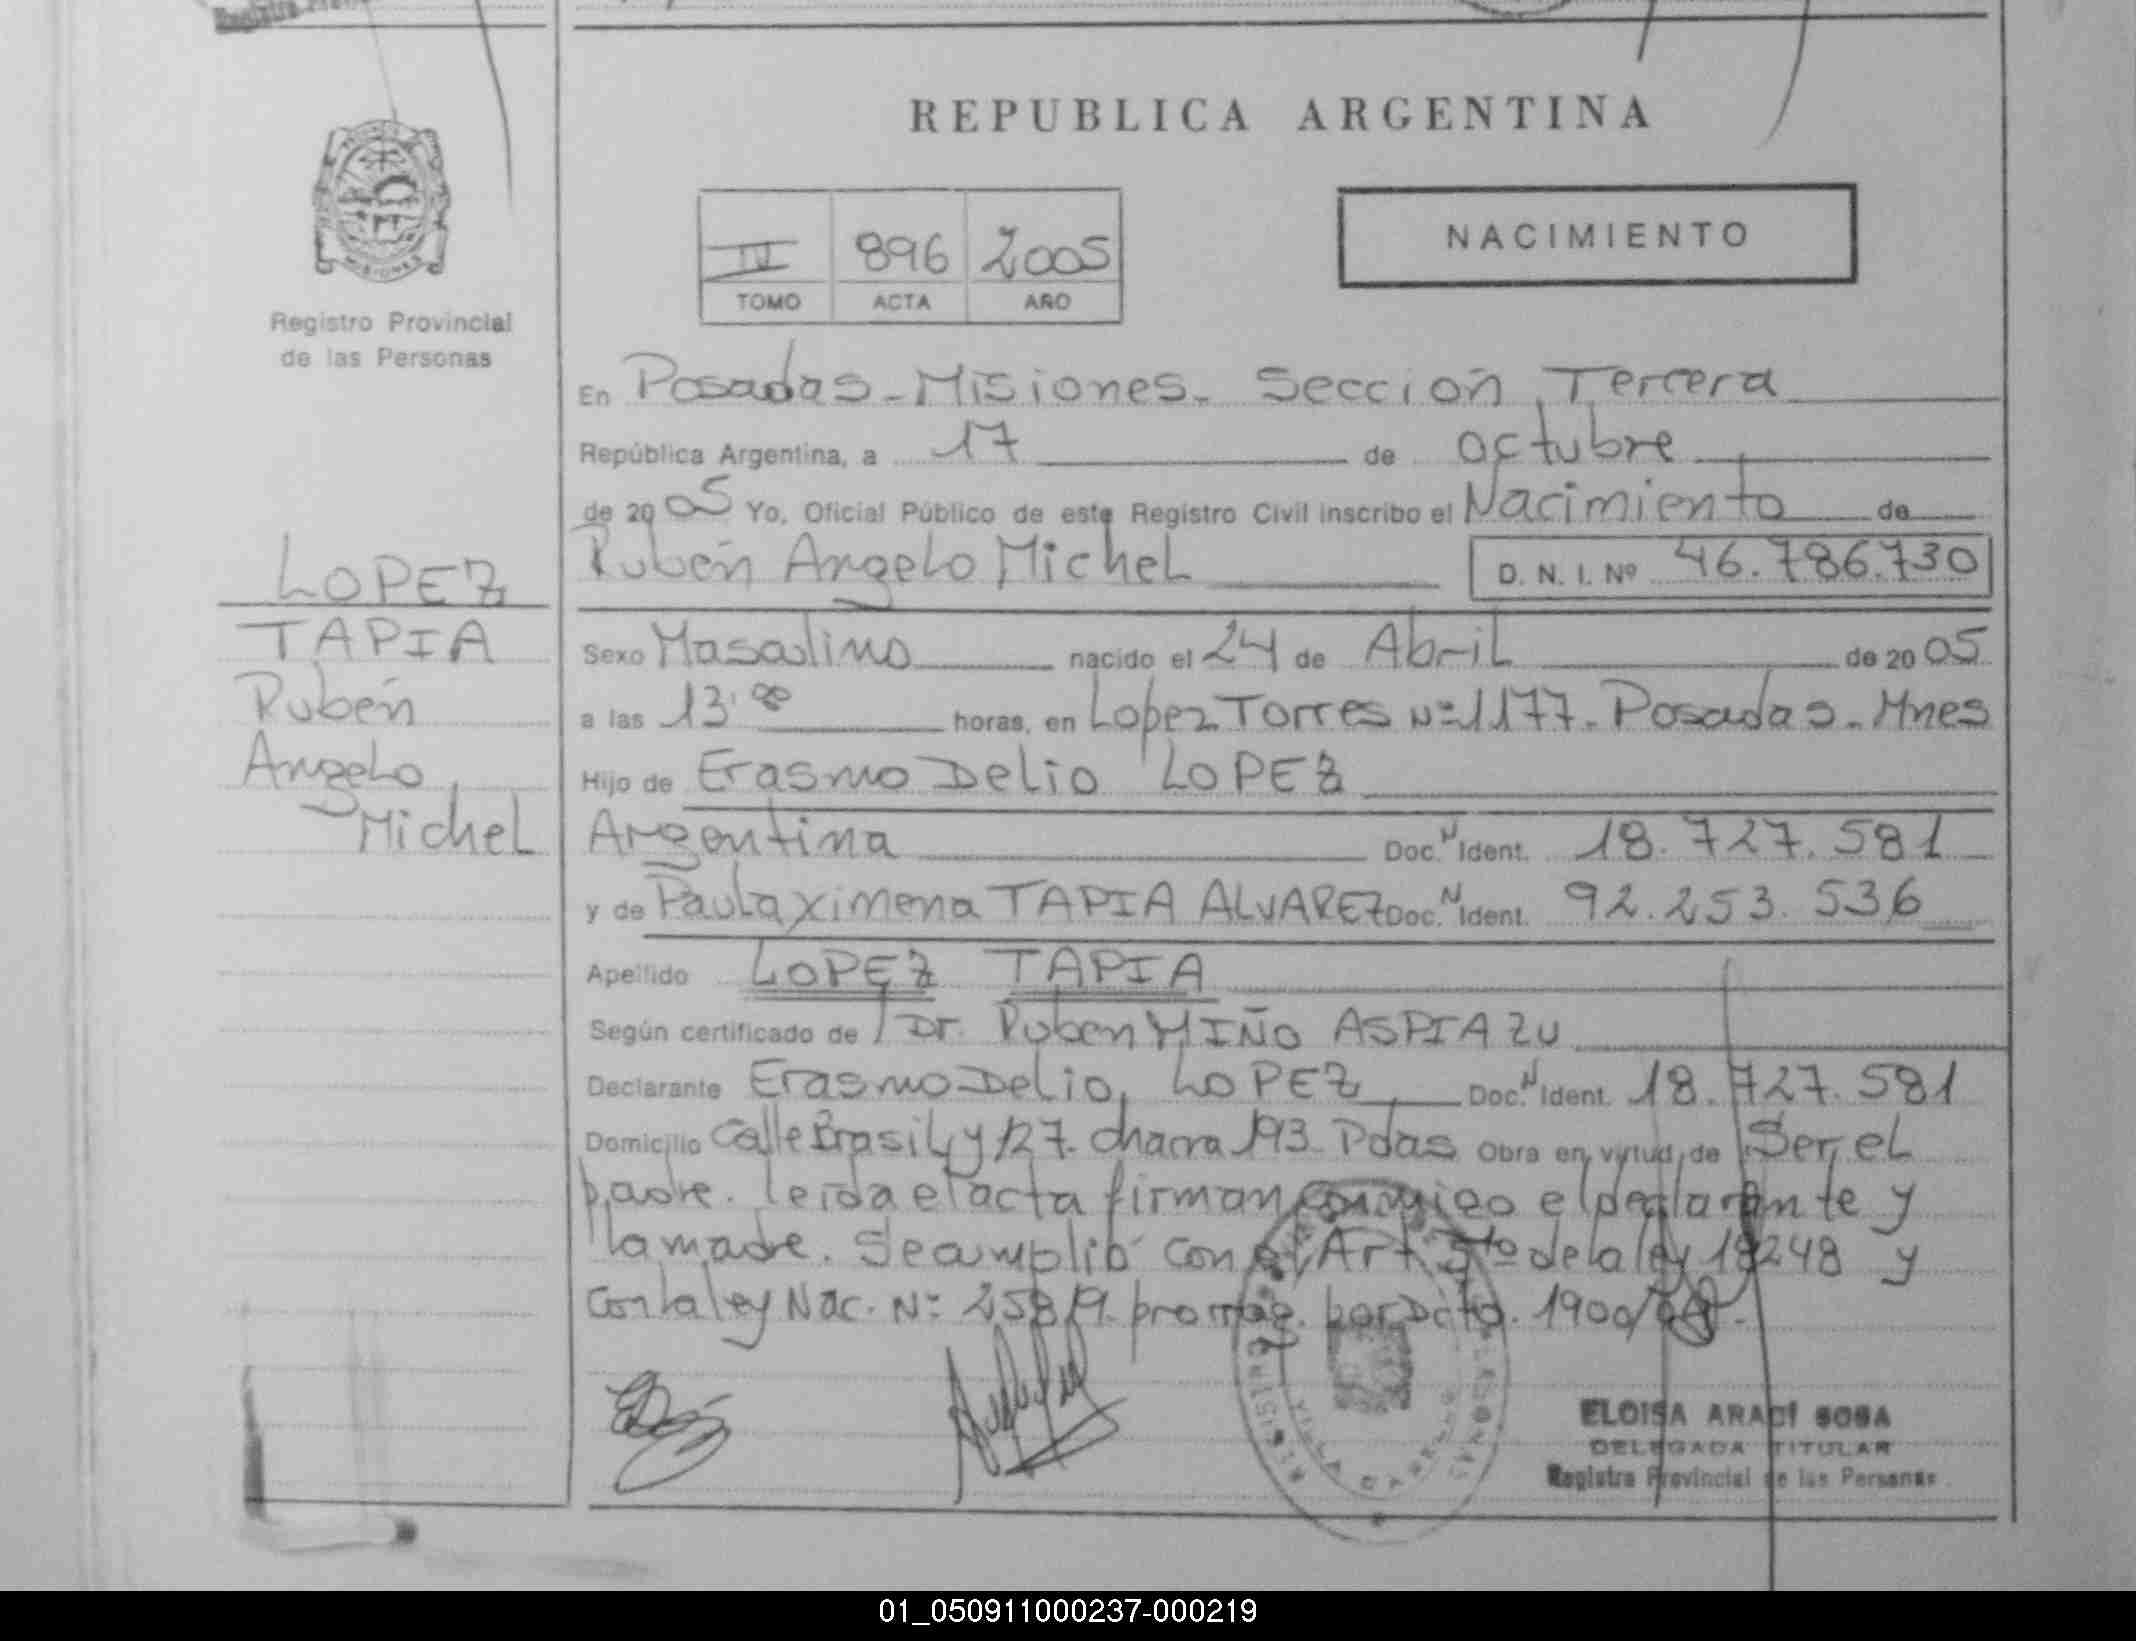 REPUBLICA ARGENTINA
NACIMIENTO
IV 896 2005
TOMO ACTA AÑO
MISIONES
Registro Provincial
de las Personas
LOPEZ
TAPIA
Rubén
Angelo
Michel
En Posadas - Misiones - Sección Tercera
República Argentina, a 17 de octubre
de 2005 Yo, Oficial Público de este Registro Civil inscribo el Nacimiento de
Rubén Angelo Michel D. N. I. Nº 46.786.730
Sexo Masculino nacido el 24 de Abril de 2005
a las 13:00 horas, en Lopez Torres Nº 1177. Posadas - Mnes
Hijo de Erasmo Delio LOPEZ
Argentina Doc. N Ident. 18.727.581
y de Paula Ximena TAPIA ALVAREZ Doc. N Ident. 92.253.536
Apellido LOPEZ TAPIA
Según certificado de Dr. Ruben MIÑO ASPIAZU
Declarante Erasmo Delio LOPEZ Doc. N Ident. 18.727.581
Domicilio Calle Brasil y 127. chacra 193 - Pdas Obra en virtud de Ser el
padre. leida el acta firman conmigo el declarante y
la madre. Se cumplió con el Art. 5to de la ley 18248 y
con la ley Nac. Nº 25819. promug. por Dcto. 1900/
ELOISA ARACI SOSA
DELEGADA TITULAR
Registro Provincial de las Personas
01_050911000237-000219